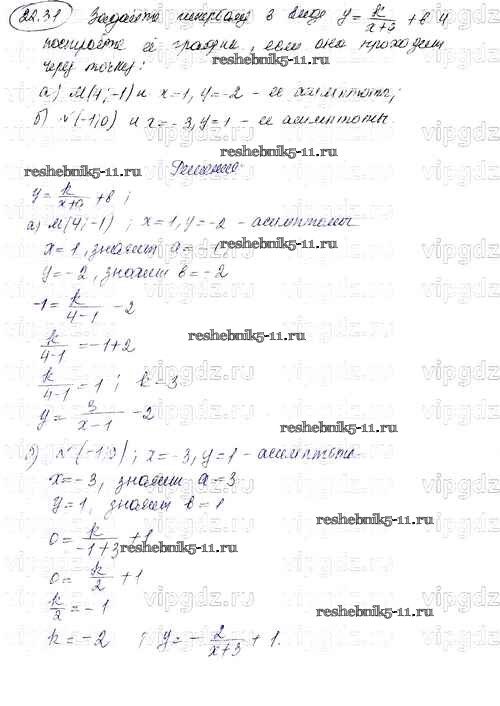 22.31 Задайте гиперболу в виде y = k/(x+a) + b и
постройте её график, если она проходит
через точку:
а) M(4;-1) и x=1, y=-2 - её асимптоты;
б) N(-1;0) и x=-3, y=1 - её асимптоты.
reshebnik5-11.ru
Решение:
y = k/(x+a) + b ;
а) M(4;-1) ; x=1, y=-2 - асимптоты
x=1, значит a=-
y=-2, значит b=-2
-1 = k/(4-1) - 2
k/(4-1) = -1+2
k/(4-1) = 1 ; k=3
y = 3/(x-1) - 2
б) N(-1;0) ; x=-3, y=1 - асимптоты
x=-3, значит a=3
y=1, значит b=1
0 = k/(-1+3) + 1
0 = k/2 + 1
k/2 = -1
k=-2 ; y = - 2/(x+3) + 1.